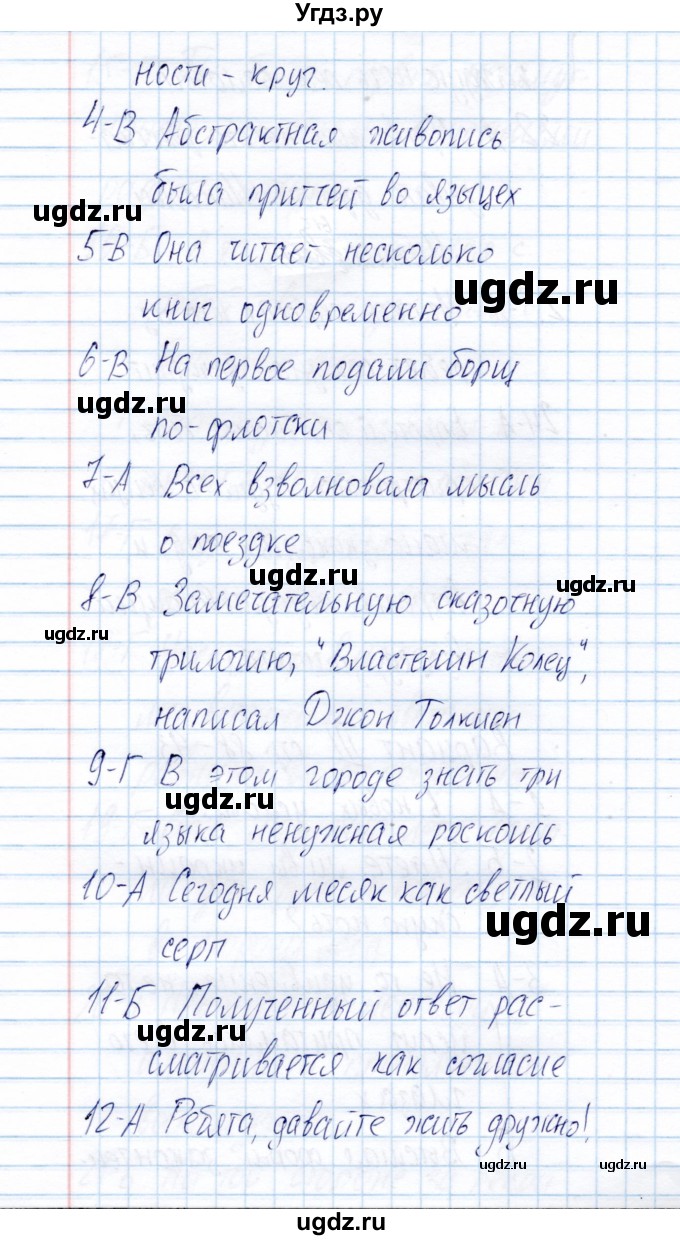 Угдз.ру
ности - круг.
4-В Абстрактная живопись
была притчей во языцех
ugdz.ru
5-В Она читает несколько
ugdz.ru
книг одновременно
6-В На первое подали борщ
ugdz.ru
по-флотски
7-А Всех взволновала мысль
о поездке
ugdz.ru
ugdz.ru
8-В Замечательную сказочную
ugdz.ru
трилогию, "Властелин Колец",
написал Джон Толкиен
9-Г В этом городе знать три
ugdz.ru
языка ненужная роскошь
10-А Сегодня месяк как светлый
ugdz.ru
серп
11-Б Полученный ответ рас-
ugdz.ru
сматривается как согласие
12-А Ребята, давайте жить дружно!
ugdz.ru
ugdz.ru
ugdz.ru